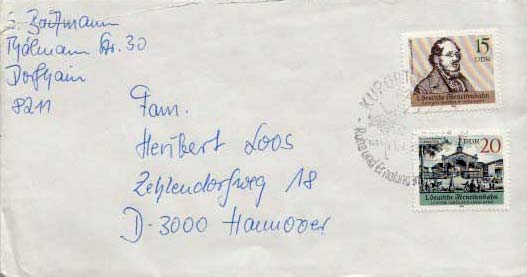 Thälmann Str. 30
Dorfhain
8211
Fam.
Heribert Loos
Zehlendorfweg 18
D-3000 Hannover
KURORT
Ruhe und Erholung
15
DDR
1. deutsche Ferneisenbahn
DDR 20
1. deutsche Ferneisenbahn